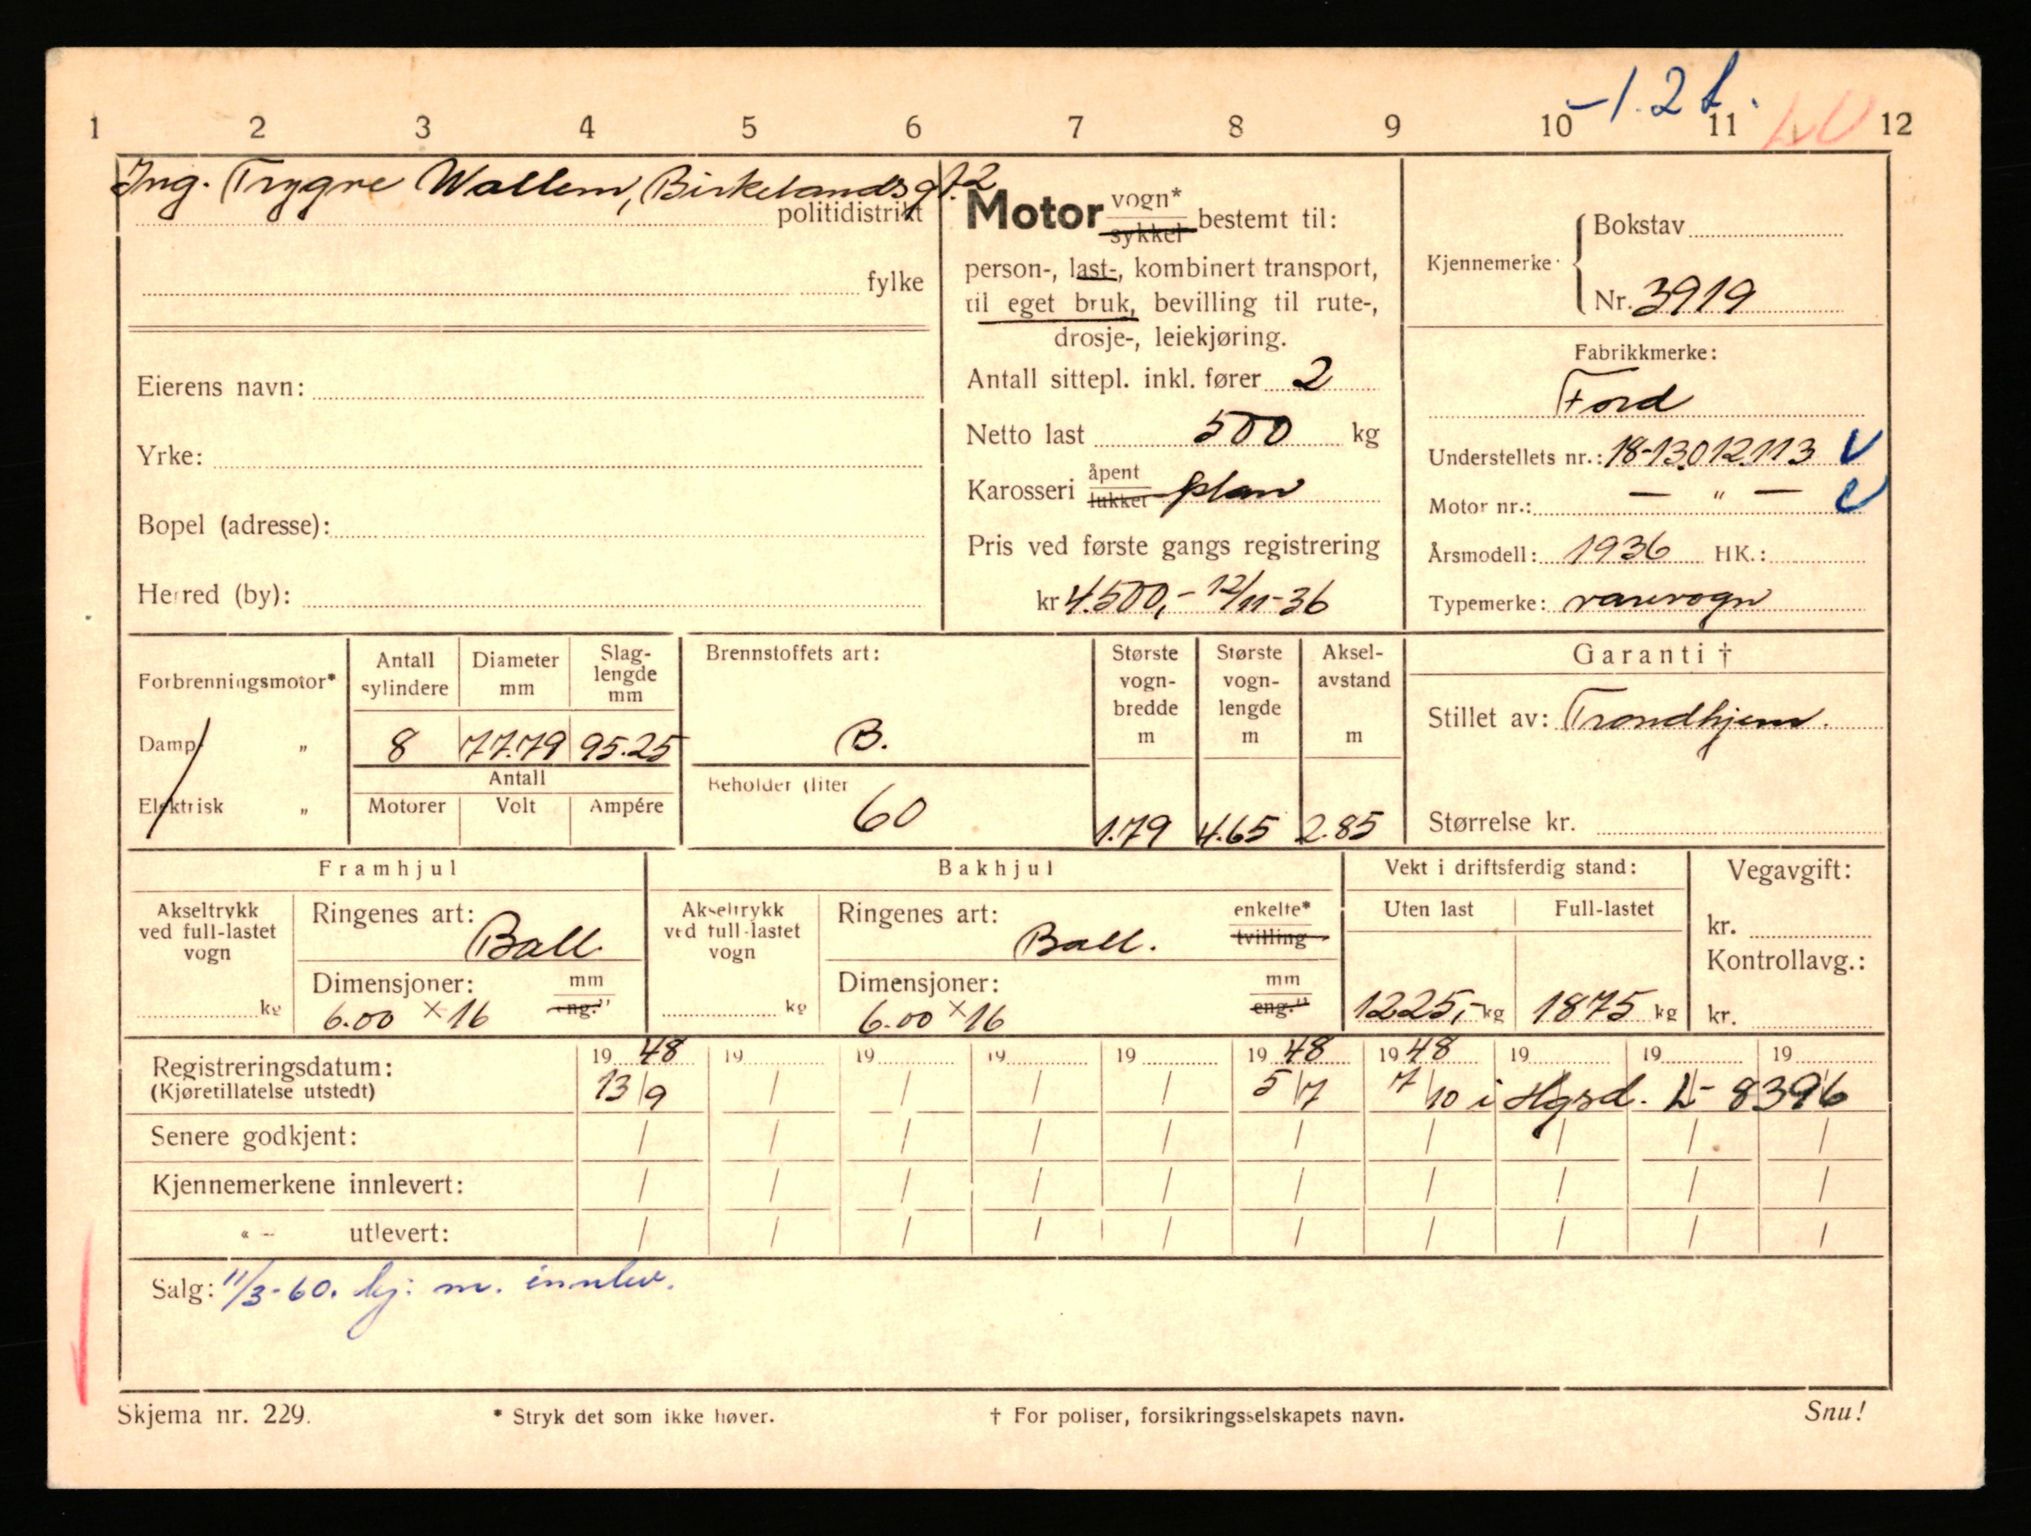 -1.2 t.
1 2 3 4 5 6 7 8 9 10 11 12
Ing. Trygve Wallem, Birkelandsgt. 2
politidistrikt
fylke
Eierens navn:
Yrke:
Bopel (adresse):
Herred (by):
Motor vogn* sykkel bestemt til:
person-, last-, kombinert transport,
til eget bruk, bevilling til rute-,
drosje-, leiekjøring.
Antall sittepl. inkl. fører 2
Netto last 500 kg
Karosseri åpent lukket plan
Pris ved første gangs registrering
kr 4.500,- 12/11-36
Kjennemerke
Bokstav
Nr. 3919
Fabrikkmerke:
Ford
Understellets nr.: 18-13012.113
Motor nr.: — " —
Årsmodell: 1936 HK.:
Typemerke: varevogn
Forbrenningsmotor*
Damp- "
Elektrisk "
Antall sylindere
Diameter mm
Slag-lengde mm
8 77.79 95.25
Antall
Motorer Volt Ampére
Brennstoffets art:
B.
Beholder (liter
60
Største vogn-bredde m
Største vogn-lengde m
Aksel-avstand m
1.79 4.65 2.85
Garanti †
Stillet av: Trondhjem.
Størrelse kr.
Framhjul
Akseltrykk ved full-lastet vogn
kg
Ringenes art:
Ball
Dimensjoner: mm eng."
6.00 x 16
Bakhjul
Akseltrykk ved full-lastet vogn
kg
Ringenes art: enkelte* tvilling
Ball.
Dimensjoner: mm eng."
6.00 x 16
Vekt i driftsferdig stand:
Uten last Full-lastet
1225,- kg 1875 kg
Vegavgift:
kr.
Kontrollavg.:
kr.
Registreringsdatum: 19 48 19 19 19 19 19 48 19 48 19 19 19
(Kjøretillatelse utstedt) 13/9 / / / / 5/7 7/10 i Hgsd. L- 8396
Senere godkjent: / / / / / / / / / /
Kjennemerkene innlevert: / / / / / / / / / /
« - utlevert: / / / / / / / / / /
Salg: 11/3-60. kj: m. innlev.
Skjema nr. 229.
* Stryk det som ikke høver.
† For poliser, forsikringsselskapets navn.
Snu!